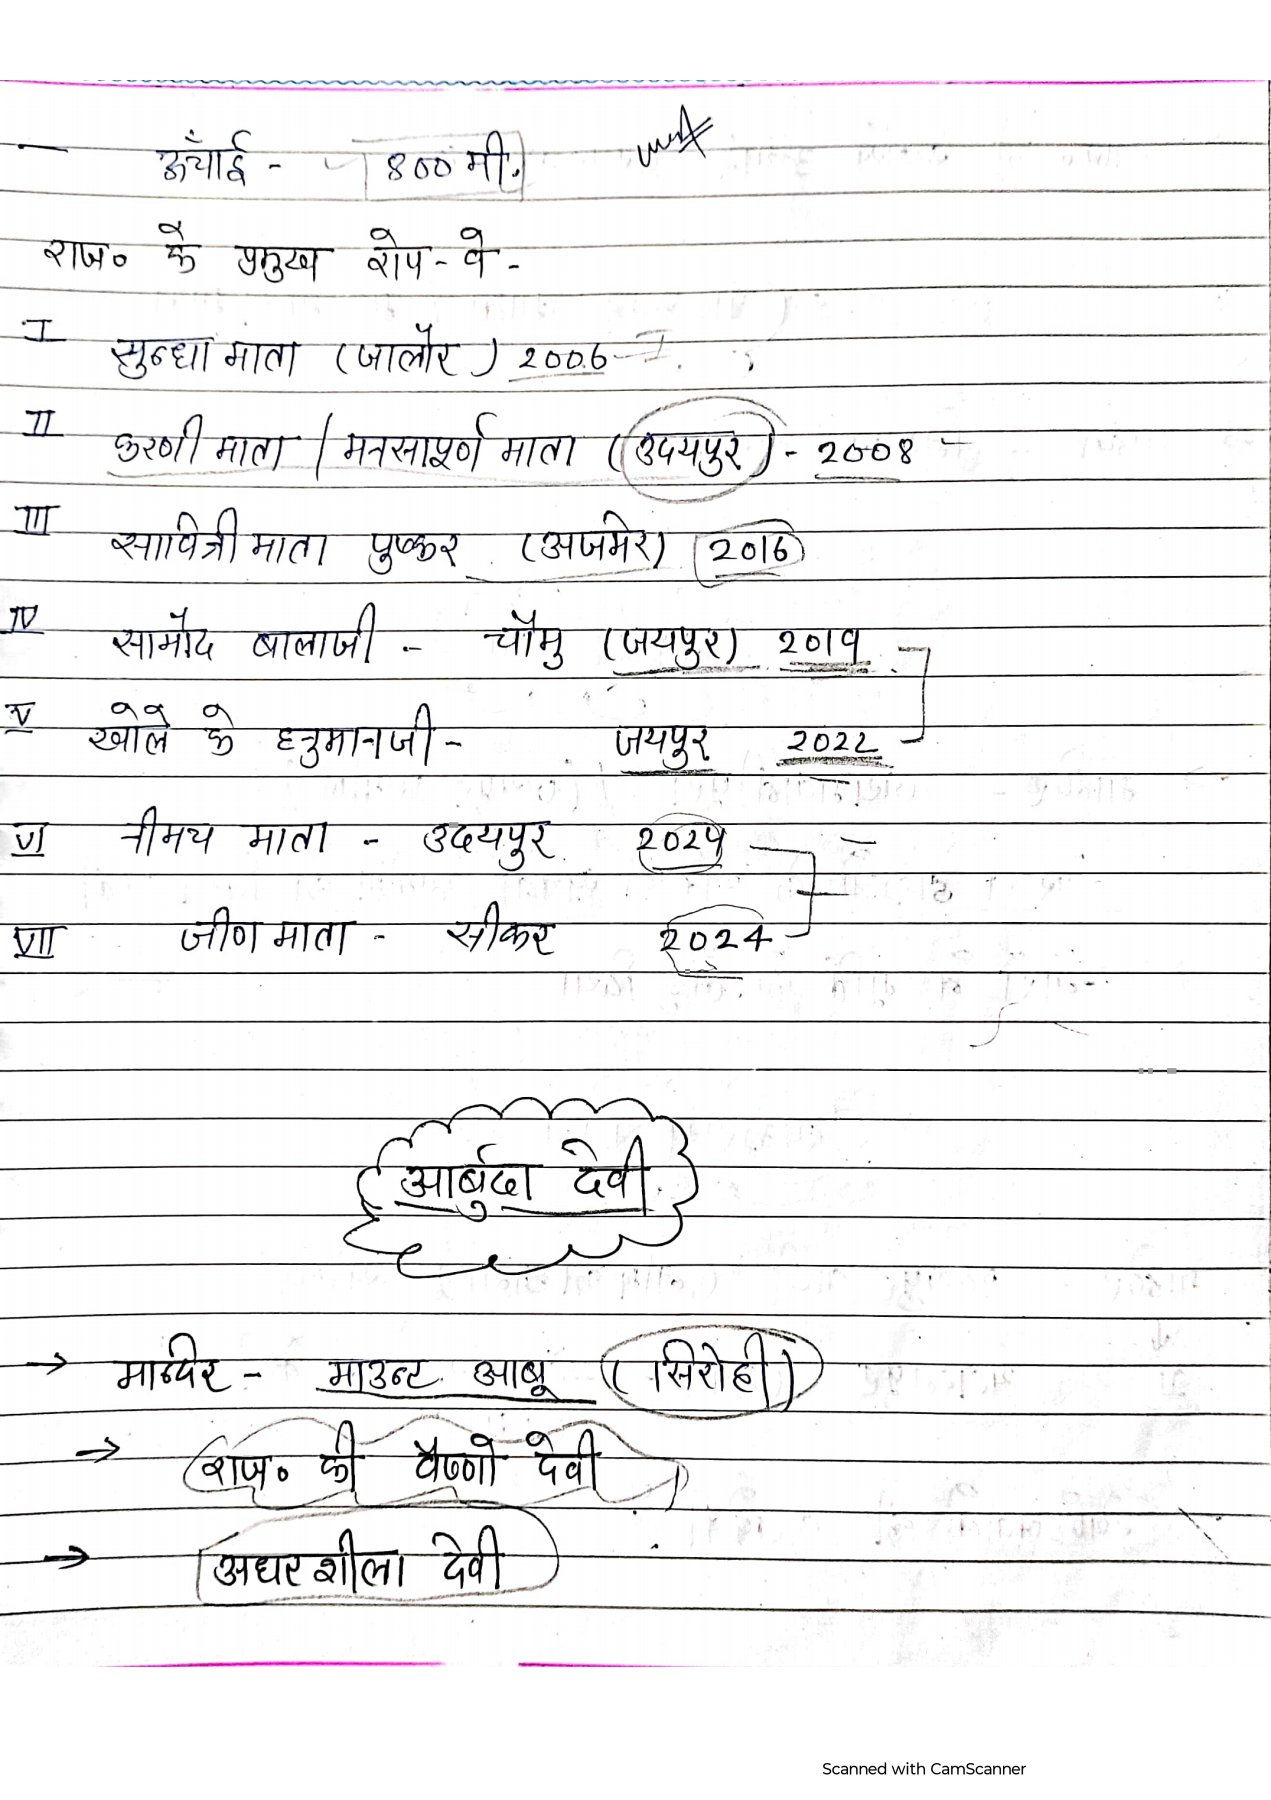 — ऊँचाई - 800 मी.
राज० के प्रमुख रोप-वे -
I सुन्धा माता (जालौर) 2006
II करणी माता / मनसापूर्ण माता (उदयपुर) - 2008
III सावित्री माता पुष्कर (अजमेर) 2016
IV सामोद बालाजी - चौमु (जयपुर) 2019
V खोले के हनुमानजी - जयपुर 2022
VI नीमच माता - उदयपुर 2024
VII जीण माता - सीकर 2024
आर्बुदा देवी
→ मन्दिर - माउन्ट आबू (सिरोही)
→ राज० की वैष्णो देवी
→ अधरशीला देवी
Scanned with CamScanner